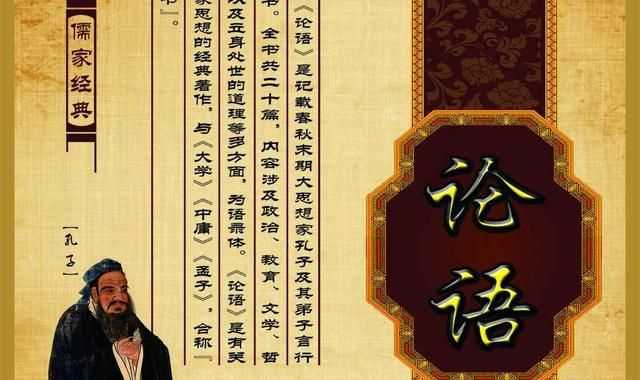 论语
《论语》是记载春秋末期大思想家孔子及其弟子言行
书。全书共二十篇，内容涉及政治、教育、文学、哲
以及立身处世的道理等多方面，为语录体。《论语》是有关
家思想的经典著作，与《大学》《中庸》《孟子》，合称『
书』。
儒家经典
[孔子]